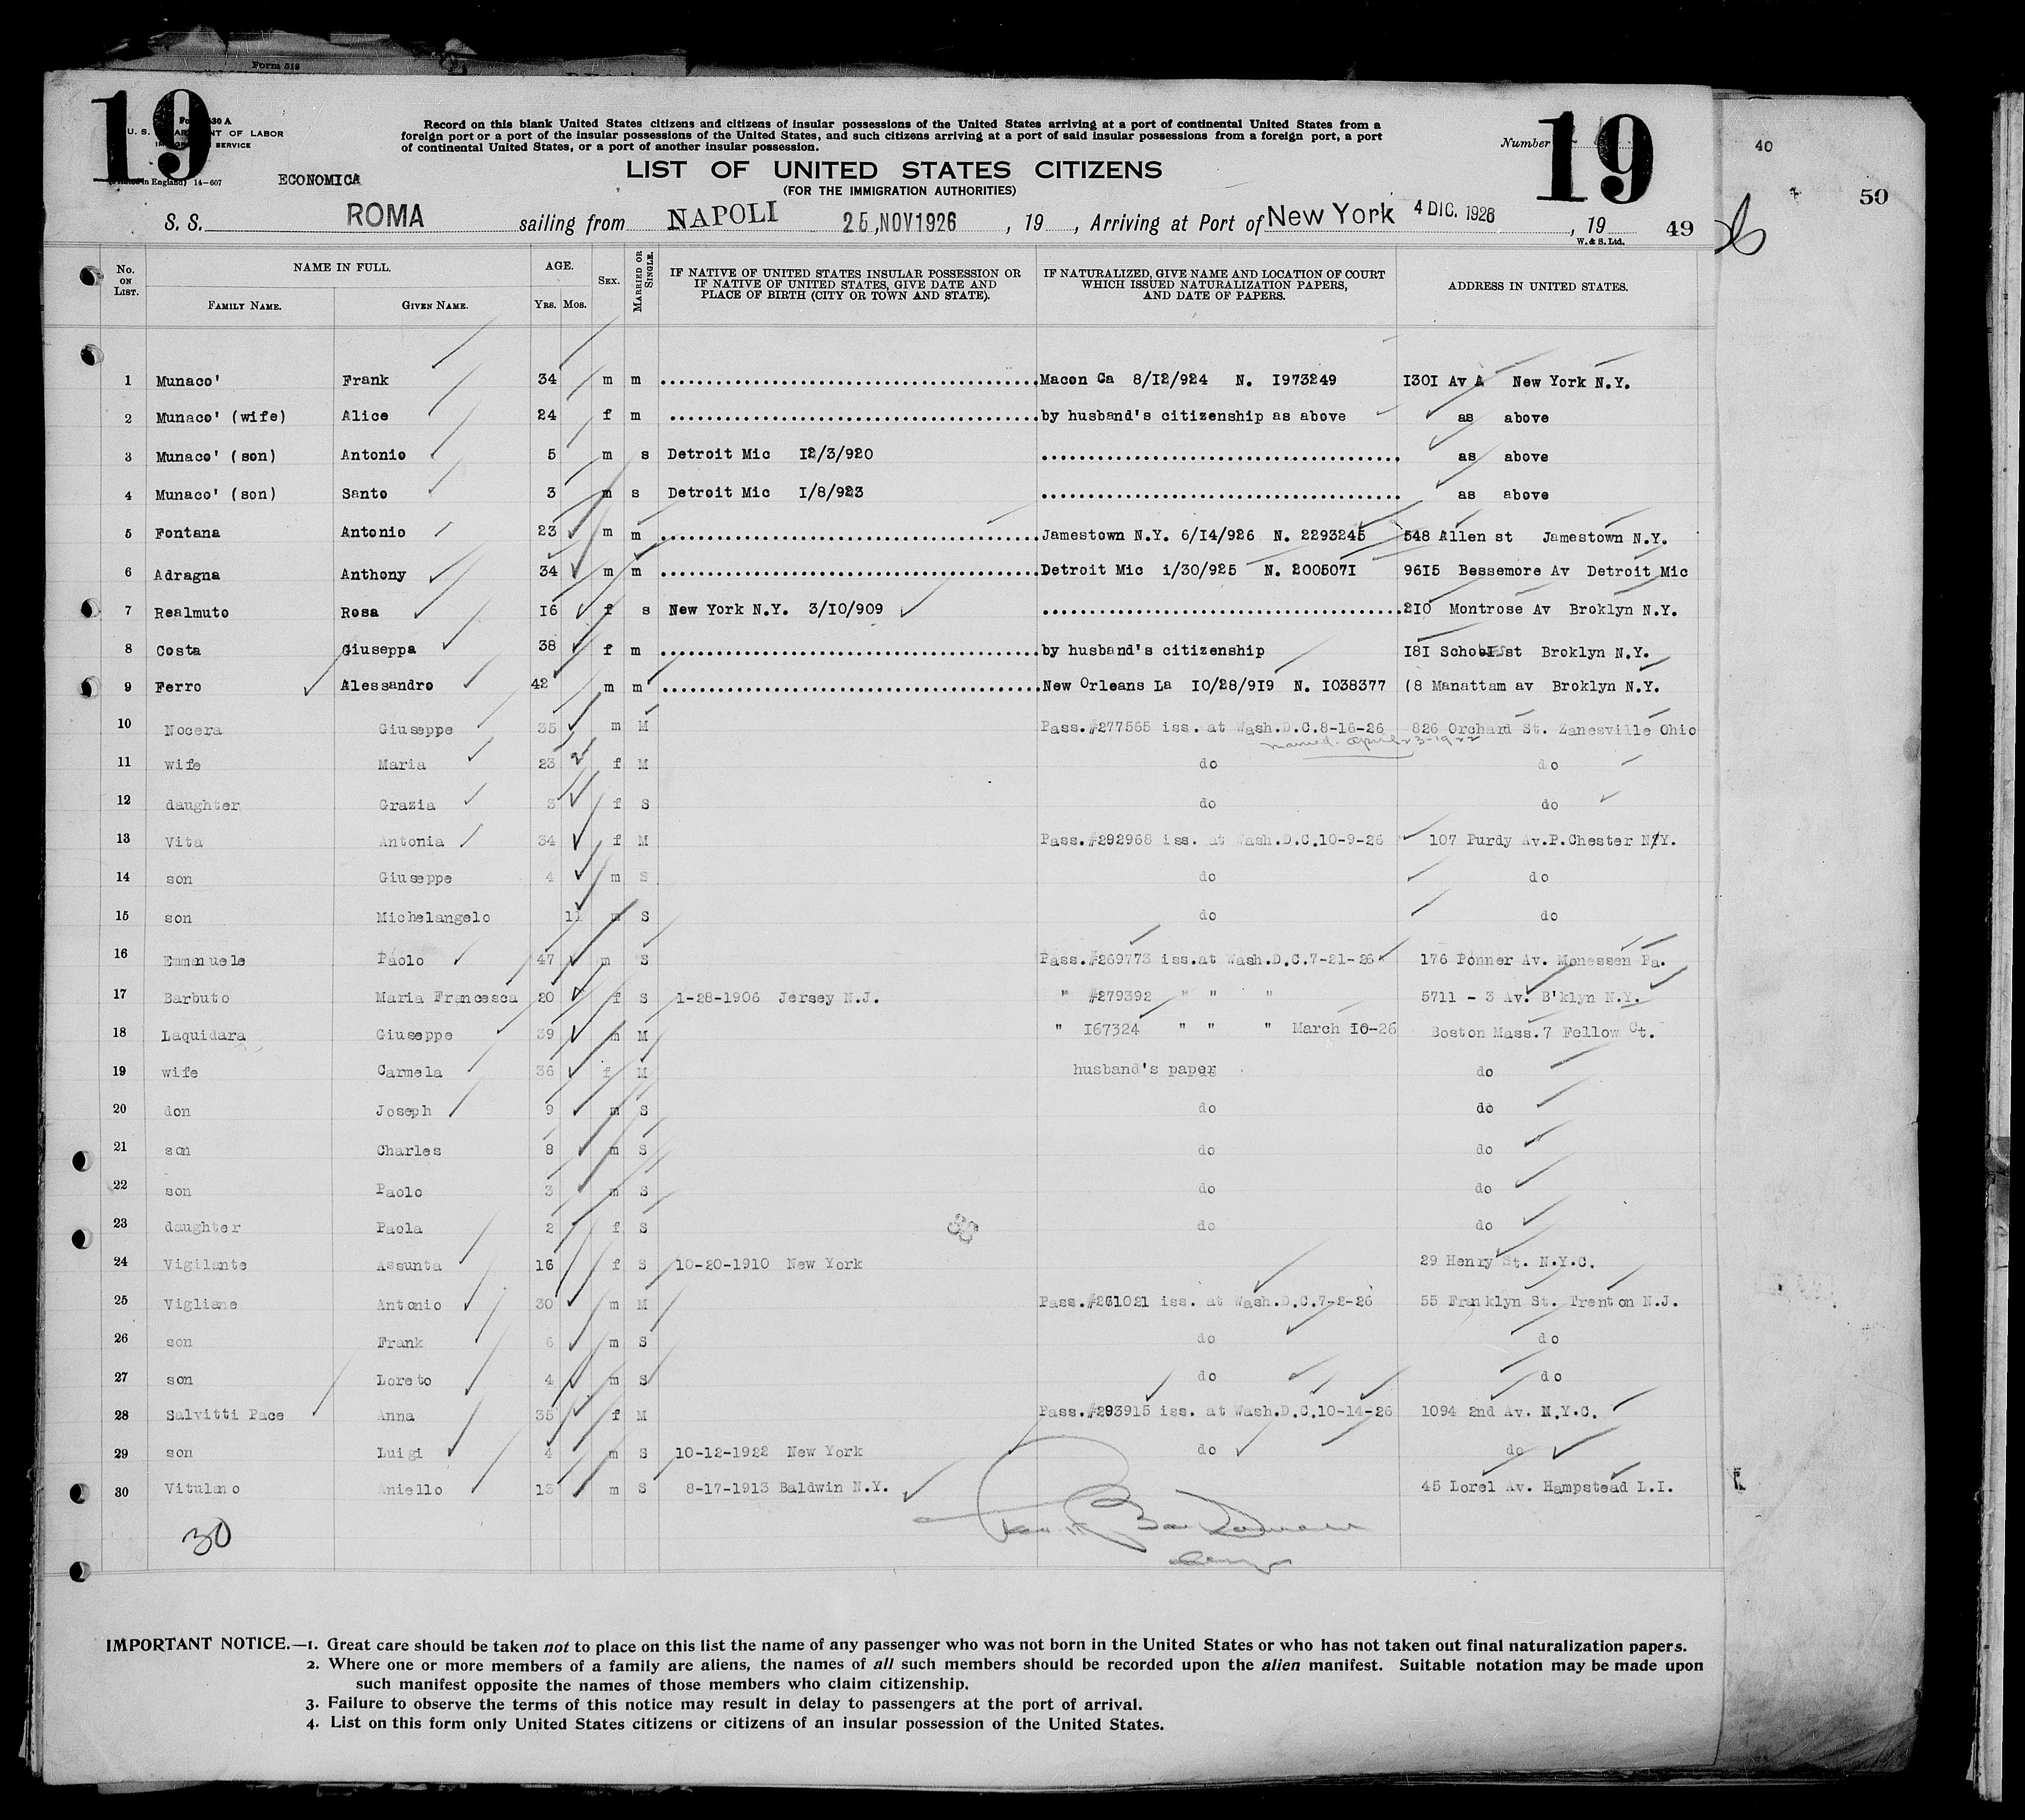 Form 518
19
19
Form 630 A
U. S. DEPARTMENT OF LABOR
IMMIGRATION SERVICE
(Printed in England) 14—607
ECONOMICA
Record on this blank United States citizens and citizens of insular possessions of the United States arriving at a port of continental United States from a
foreign port or a port of the insular possessions of the United States, and such citizens arriving at a port of said insular possessions from a foreign port, a port
of continental United States, or a port of another insular possession.
Number
40
50
LIST OF UNITED STATES CITIZENS
(FOR THE IMMIGRATION AUTHORITIES)
S. S. ROMA sailing from NAPOLI 25,NOV1926 , 19 , Arriving at Port of New York 4 DIC. 1926 , 19 49
W. & S. Ltd.
No. ON LIST. NAME IN FULL. AGE. SEX. MARRIED OR SINGLE. IF NATIVE OF UNITED STATES INSULAR POSSESSION OR IF NATIVE OF UNITED STATES, GIVE DATE AND PLACE OF BIRTH (CITY OR TOWN AND STATE). IF NATURALIZED, GIVE NAME AND LOCATION OF COURT WHICH ISSUED NATURALIZATION PAPERS, AND DATE OF PAPERS. ADDRESS IN UNITED STATES.
FAMILY NAME. GIVEN NAME. YRS. MOS.
1 Munaco' Frank 34 m m Macon Ga 8/I2/924 N. I973249 I30I Av A New York N.Y.
2 Munaco' (wife) Alice 24 f m by husband's citizenship as above as above
3 Munaco' (son) Antonio 5 m s Detroit Mic I2/3/920 as above
4 Munaco' (son) Santo 3 m s Detroit Mic I/8/923 as above
5 Fontana Antonio 23 m m Jamestown N.Y. 6/I4/926 N. 2293245 548 Allen st Jamestown N.Y.
6 Adragna Anthony 34 m m Detroit Mic 1/30/925 N. 200507I 96I5 Bessemore Av Detroit Mic
7 Realmuto Rosa I6 f s New York N.Y. 3/I0/909 2I0 Montrose Av Broklyn N.Y.
8 Costa Giuseppa 38 f m by husband's citizenship I8I st Broklyn N.Y.
9 Ferro Alessandro 42 m m New Orleans La I0/28/9I9 N. I038377 (8 Manattam av Broklyn N.Y.
10 Nocera Giuseppe 35 m M Pass.#277565 iss. at Wash.D.C.8-16-26 826 Orchard St. Zanesville Ohio
married. April 23-1922
11 wife Maria 23 f M do do
12 daughter Grazia 3 f S do do
13 Vita Antonia 34 f M Pass.#292968 iss. at Wash.D.C.10-9-26 107 Purdy Av.P.Chester N.Y.
14 son Giuseppe 4 m S do do
15 son Michelangelo 11 m S do do
16 Emmanuele Paolo 47 m S Pass.#269773 iss.at Wash.D.C.7-21-26 176 Ponner Av. Monessen Pa.
17 Barbuto Maria Francesca 20 f S 1-28-1906 Jersey N.J. " #279392 " " " 5711 - 3 Av. B'klyn N.Y.
18 Laquidara Giuseppe 39 m M " I67324 " " " March I0-26 Boston Mass.7 Fellow Ct.
19 wife Carmela 36 f M husband's paper do
20 don Joseph 9 m S do do
21 son Charles 8 m S do do
22 son Paolo 3 m S do do
23 daughter Paola 2 f S do do
24 Vigilante Assunta 16 f S 10-20-1910 New York 29 Henry St. N.Y.C.
25 Vigliane Antonio 30 m M Pass.#261021 iss. at Wash.D.C.7-2-26 55 Franklyn St. Trenton N.J.
26 son Frank 6 m S do do
27 son Loreto 4 m S do do
28 Salvitti Pace Anna 35 f M Pass.#293915 iss. at Wash.D.C.10-14-26 1094 2nd Av. N.Y.C.
29 son Luigi 4 m S 10-12-1922 New York do do
30 Vitulano Aniello 13 m S 8-17-1913 Baldwin N.Y. 45 Lorel Av. Hampstead L.I.
30
IMPORTANT NOTICE.—1. Great care should be taken not to place on this list the name of any passenger who was not born in the United States or who has not taken out final naturalization papers.
2. Where one or more members of a family are aliens, the names of all such members should be recorded upon the alien manifest. Suitable notation may be made upon
such manifest opposite the names of those members who claim citizenship.
3. Failure to observe the terms of this notice may result in delay to passengers at the port of arrival.
4. List on this form only United States citizens or citizens of an insular possession of the United States.